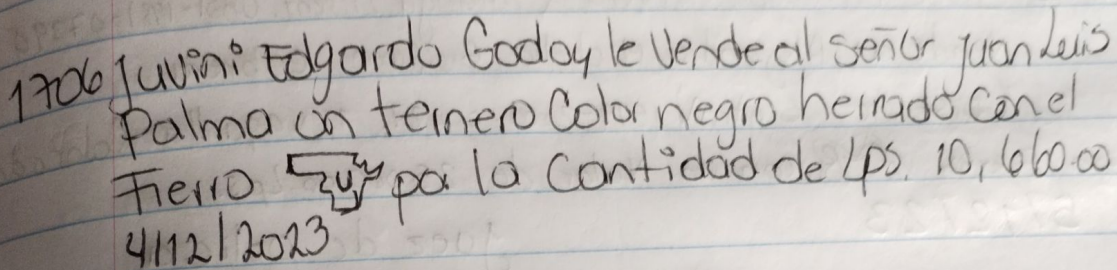 1706 Juvini Edgardo Godoy le Vende al señor Juan Luis
Palma un ternero Color negro herrado con el
Fierro por la Cantidad de Lps. 10,660.00
4/12/2023